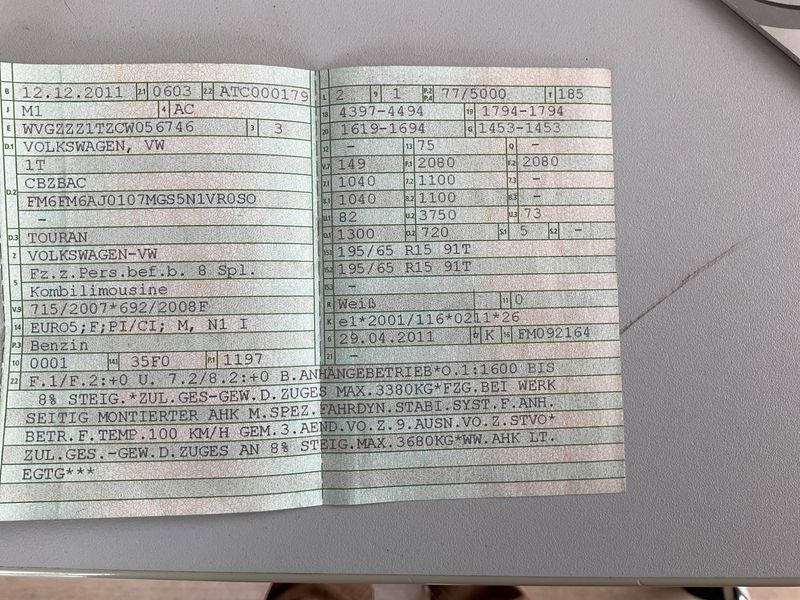 B 12.12.2011 2.1 0603 2.2 ATC000179
J M1 4 AC
E WVGZZZ1TZCW056746 3 3
D.1 VOLKSWAGEN, VW
1T
D.2 CBZBAC
FM6FM6AJ0107MGS5N1VR0SO
-
D.3 TOURAN
2 VOLKSWAGEN-VW
5 Fz.z.Pers.bef.b. 8 Spl.
Kombilimousine
V.9 715/2007*692/2008F
14 EURO5;F;PI/CI; M, N1 I
P.3 Benzin
10 0001 14.1 35F0 P.1 1197
L 2 9 1 P.2 P.4 77/5000 T 185
18 4397-4494 19 1794-1794
20 1619-1694 G 1453-1453
12 - 13 75 Q -
V.7 149 F.1 2080 F.2 2080
7.1 1040 7.2 1100 7.3 -
8.1 1040 8.2 1100 8.3 -
U.1 82 U.2 3750 U.3 73
O.1 1300 O.2 720 S.1 5 S.2 -
15.1 195/65 R15 91T
15.2 195/65 R15 91T
15.3 -
R Weiß 11 0
K e1*2001/116*0211*26
6 29.04.2011 17 K 16 FM092164
21 -
22 F.1/F.2:+0 U. 7.2/8.2:+0 B.ANHÄNGEBETRIEB*O.1:1600 BIS
8% STEIG.*ZUL.GES-GEW.D.ZUGES MAX.3380KG*FZG.BEI WERK
SEITIG MONTIERTER AHK M.SPEZ.FAHRDYN.STABI.SYST.F.ANH.
BETR.F.TEMP.100 KM/H GEM.3.AEND.VO.Z.9.AUSN.VO.Z.STVO*
ZUL.GES.-GEW.D.ZUGES AN 8% STEIG.MAX.3680KG*WW.AHK LT.
EGTG***